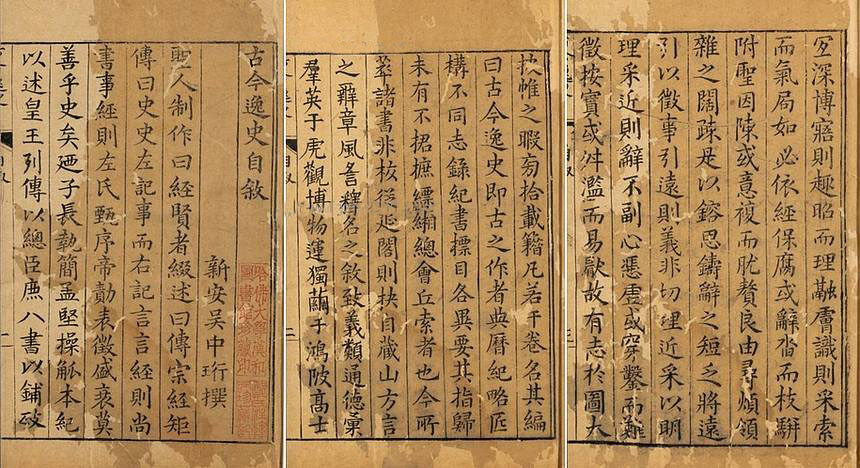 古今逸史自敘
新安吳中珩撰
聖人制作曰經賢者綴述曰傳宗經矩
傳曰史史左記事而右記言言經則尚
書事經則左氏甄序帝勣表徵盛衰莫
善乎史矣廼子長執簡孟堅操觚本紀
以述皇王列傳以總臣庶八書以鋪政
哈佛大學漢和圖書館珍藏印
自敘
帷之暇旁拾載籍凡若干卷名其編
曰古今逸史即古之作者典曆紀略匹
構不同志錄紀書標目各異要其指歸
未有不捃摭縹緗總會丘索者也今所
萃諸書非扷從延閣則抉自蔵山方言
之辯章風言釋名之敘致義類通德彙
羣英于虎觀博物運獨繭于鴻陂高士
自敘
二
宏深博寤則趣昭而理融膚識則采索
而氣局如必依經保腐或辭沓而枝駢
附聖因陳或意複而肬贅良由尋煩領
雜之闊疎是以鎔思鑄辭之短乏將遠
引以徵事引遠則義非切理近采以明
理采近則辭不副心憑虛或穿鑿而難
徵按實或舛濫而易歇故有志於圖大
自敘